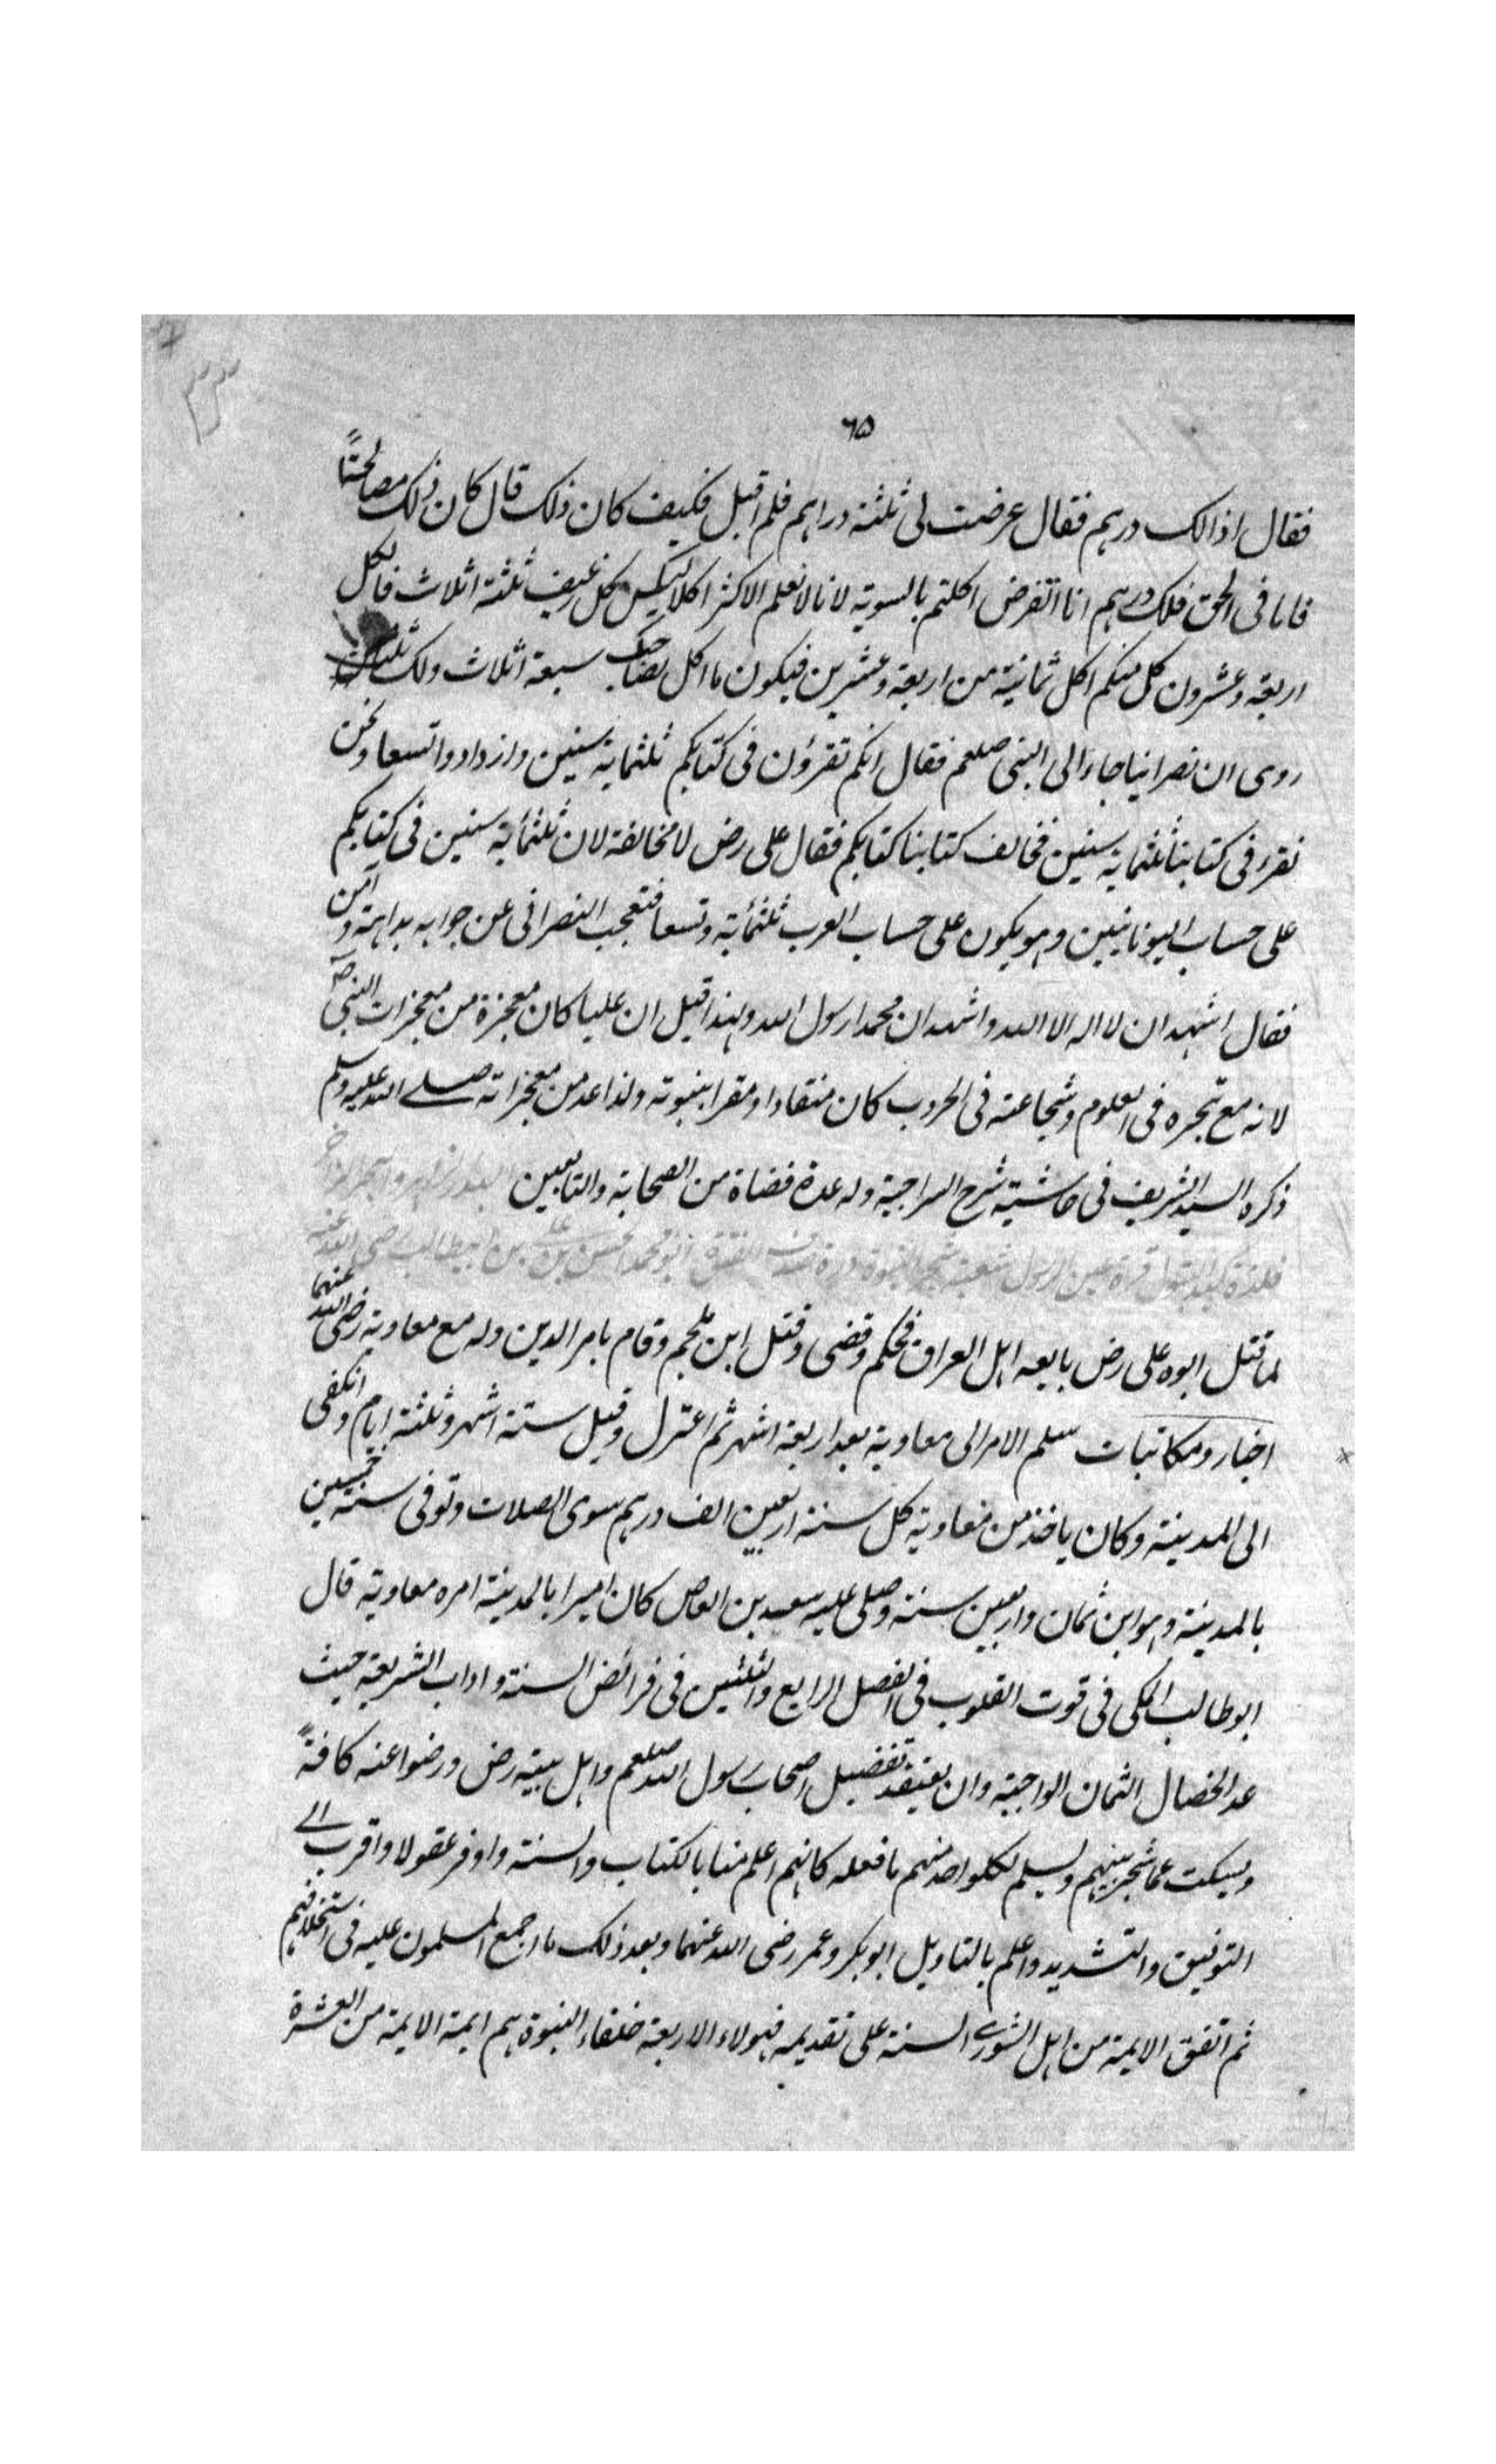 ٣٣
٦٥
فقال اذا لك درهم فقال عرضت لى ثلثة دراهم فلم اقبل فكيف كان ذلك قال كان ذلك مصالحتاً
فاما فى الحق فلك درهم انا نفرض اكلتم بالسوية لانا لا نعلم الاكثر اكلا لكل رغيف ثلثة اثلاث فالكل
اربعة وعشرون كل منكم اكل ثمانية من اربعة وعشرين فيكون ما اكل بصاحبك سبعة اثلاث ولك ثلث
روى ان نصرانيا جاء الى النبى صلعم فقال انكم تقرؤن فى كتابكم ثلثماية سنين وازدادوا تسعا ونحن
نقرء فى كتابنا ثلثماية سنين فخالف كتابنا كتابكم فقال على رض لا مخالفة لان ثلثمأية سنين فى كتابكم
على حساب اليونانيين وهو يكون على حساب العرب ثلثمأية وتسعا فتعجب النصرانى عن جوابه بداهة وآمن
فقال اشهد ان لا اله الا الله واشهد ان محمدا رسول الله ولهذا قيل ان عليا كان معجزة من معجزات النبى صـ
لانه مع تبحره فى العلوم وشجاعته فى الحروب كان منقادا ومقرا بنبوته ولذا عد من معجزاته صلے الله عليه وسلم
ذكره السيد الشريف فى حاشية شرح السراجية وله عدة قضاة من الصحابة والتابعين
فلذة كبد البتول قرة عين الرسول شعبة شجر النبوة درة صدف الفتوة ابو محمد الحسن بن على بن ابيطالب رضى الله عنه
لما قتل ابوه على رض بايعه اهل العراق فحكم وقضى وقتل ابن ملجم وقام بامر الدين وله مع معاوية رضى الله عنهما
اخبار ومكاتبات سلم الامر الى معاوية بعد اربعة اشهر ثم اعتزل وقيل ستة اشهر وثلثة ايام وانكفى
الى المدينة وكان ياخذ من معاوية كل سنة اربعين الف درهم سوى الصلات وتوفى سنة خمسين
بالمدينة وهو ابن ثمان واربعين سنة وصلى عليه سعيد بن العاص كان اميرا بالمدينة امره معاوية قال
ابو طالب المكى فى قوت القلوب فى الفصل الرابع والثلثين فى فرائض السنة واداب الشريعة حيث
عد الخصال الثمان الواجبة وان يعتقد تفضيل اصحاب رسول الله صلعم واهل بيته رض ورضوا عنه كافةً
ويسكت عما شجر بينهم ويسلم لكل واحد منهم ما فعله كانهم اعلم منا بالكتاب والسنة واوفر عقولا واقرب الے
التوفيق والتشديد واعلم بالتاويل ابو بكر وعمر رضى الله عنهما وبعد ذلك ما اجمع المسلمون عليه فى استخلافهم
ثم اتفق الايمة من اهل الشورے الستة على تقديمه فهولاء الاربعة خلفاء النبوة هم ايمة الايمة من العشرة